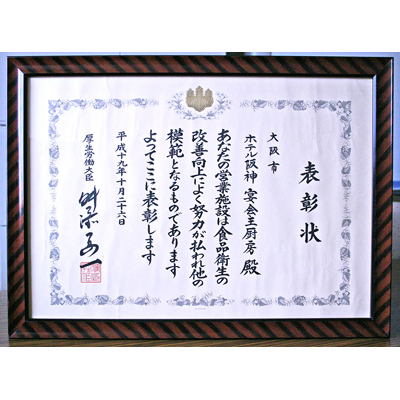 表彰状
大阪市
ホテル阪神 宴会主厨房 殿
あなたの営業施設は食品衛生の
改善向上によく努力が払われ他の
模範となるものであります
よってここに表彰します
平成十九年十月二十六日
厚生労働大臣
舛添要一